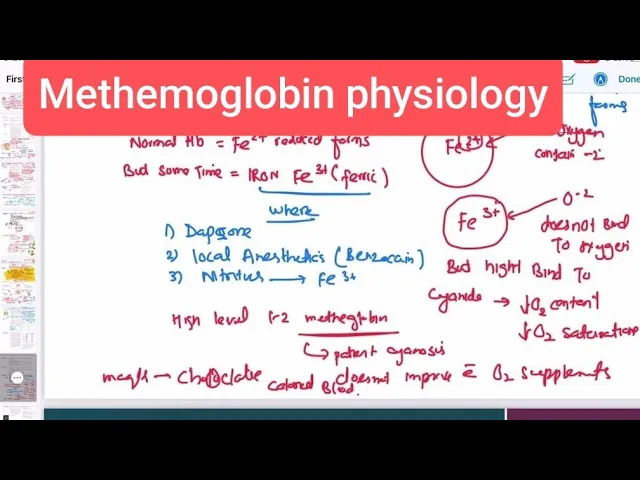 First
Done
Methemoglobin physiology
forms
Normal Hb = Fe2+ reduced forms
But Some Time = IRON Fe3+ (ferric)
Where
1) Dapsone
2) Local Anesthetics (Benzocain)
3) Nitrites → Fe3+
High level metheglobin
↳ patient cyanosis
Chocolate Colored Blood.
doesnot improve c̄ O2 supplements
Fe2+
oxygen
Fe3+
O-2
doesnot Bind
To oxygen
But hight Bind To
Cyanide → ↓O2 content
↓O2 saturation